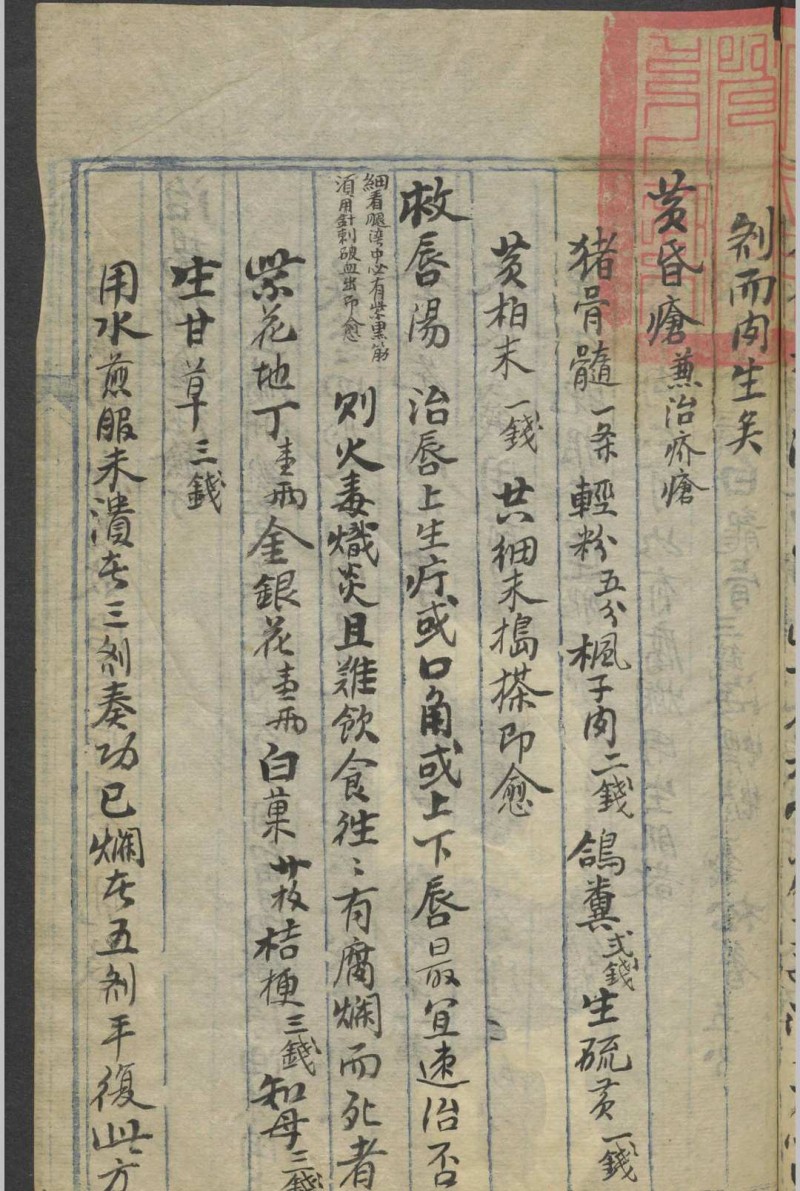 剂而肉生矣
黄昏瘡 兼治疥瘡
猪骨髓一条 輕粉五分 楓子肉二錢 鴿糞弍錢 生硫黄一錢
黄柏末一錢 共細末搗搽即愈
救唇湯 治唇上生疔或口角或上下唇最宜速治否
細看腿湾中必有紫黑筋
須用針刺破血出即愈
则火毒熾炎且难飲食往〻有腐爛而死者
紫花地丁壹両 金銀花壹両 白菓廿枚 桔梗三錢 知母三錢
生甘草三錢
用水煎服未潰者三剂奏功已爛者五剂平復此方